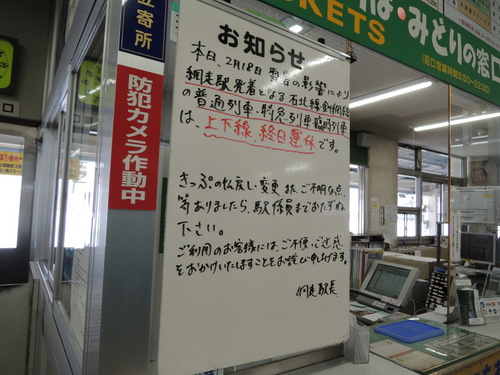 立寄所
防犯カメラ作動中
TICKETS
ば・みどりの窓口
お知らせ
本日、2月18日 雪害の影響により
網走駅発着となる石北線 釧網線
の普通列車、特急列車、臨時列車
は、上下線、終日運休です。
きっぷの払戻し・変更 また、ご不明な点
等ありましたら、駅係員までおたずね
下さい。
ご利用のお客様には、ご不便、ご迷惑
をおかけいたしますことをお詫び申し上げます。
網走駅長